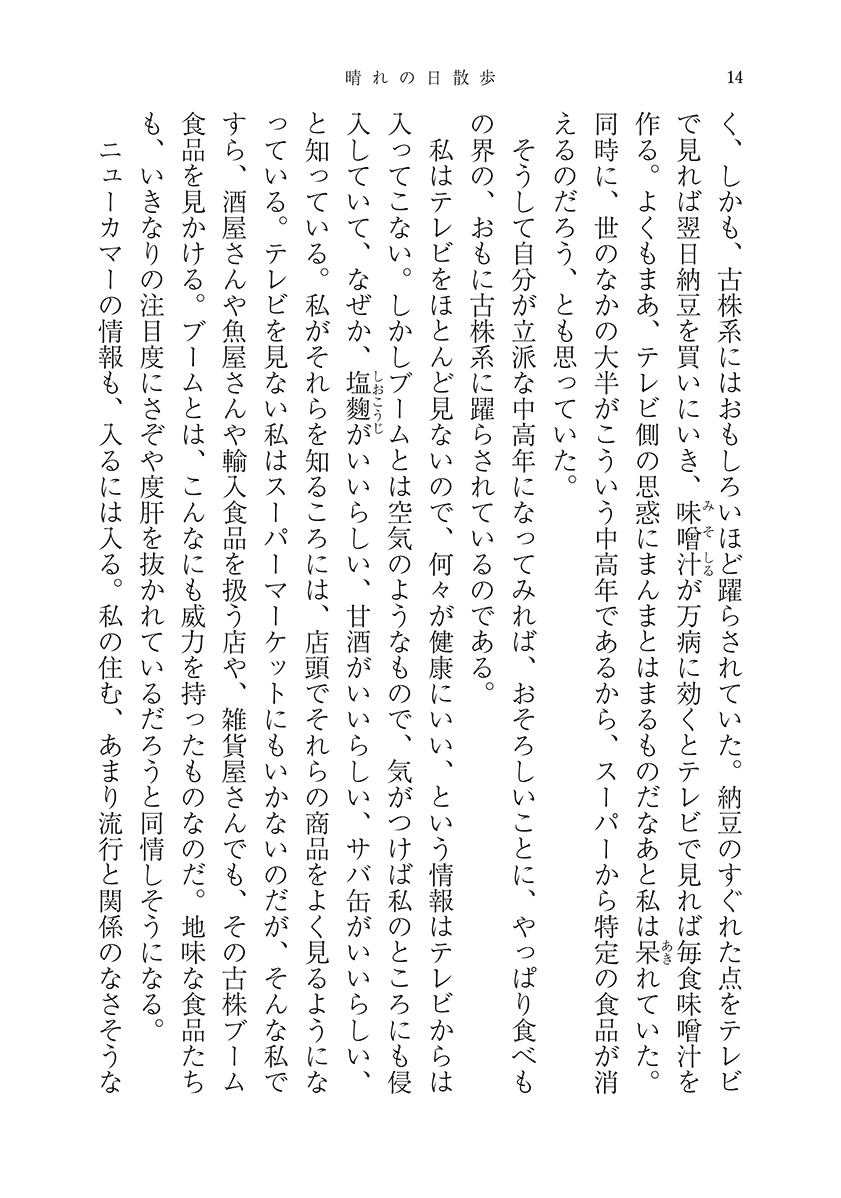 晴れの日散歩
14
く、しかも、古株系にはおもしろいほど躍らされていた。納豆のすぐれた点をテレビ
で見れば翌日納豆を買いにいき、味噌汁が万病に効くとテレビで見れば毎食味噌汁を
作る。よくもまあ、テレビ側の思惑にまんまとはまるものだなあと私は呆れていた。
同時に、世のなかの大半がこういう中高年であるから、スーパーから特定の食品が消
えるのだろう、とも思っていた。
そうして自分が立派な中高年になってみれば、おそろしいことに、やっぱり食べも
の界の、おもに古株系に躍らされているのである。
私はテレビをほとんど見ないので、何々が健康にいい、という情報はテレビからは
入ってこない。しかしブームとは空気のようなもので、気がつけば私のところにも侵
入していて、なぜか、塩麴がいいらしい、甘酒がいいらしい、サバ缶がいいらしい、
と知っている。私がそれらを知るころには、店頭でそれらの商品をよく見るようにな
っている。テレビを見ない私はスーパーマーケットにもいかないのだが、そんな私で
すら、酒屋さんや魚屋さんや輸入食品を扱う店や、雑貨屋さんでも、その古株ブーム
食品を見かける。ブームとは、こんなにも威力を持ったものなのだ。地味な食品たち
も、いきなりの注目度にさぞや度肝を抜かれているだろうと同情しそうになる。
ニューカマーの情報も、入るには入る。私の住む、あまり流行と関係のなさそうな
みそしる
あき
しおこうじ